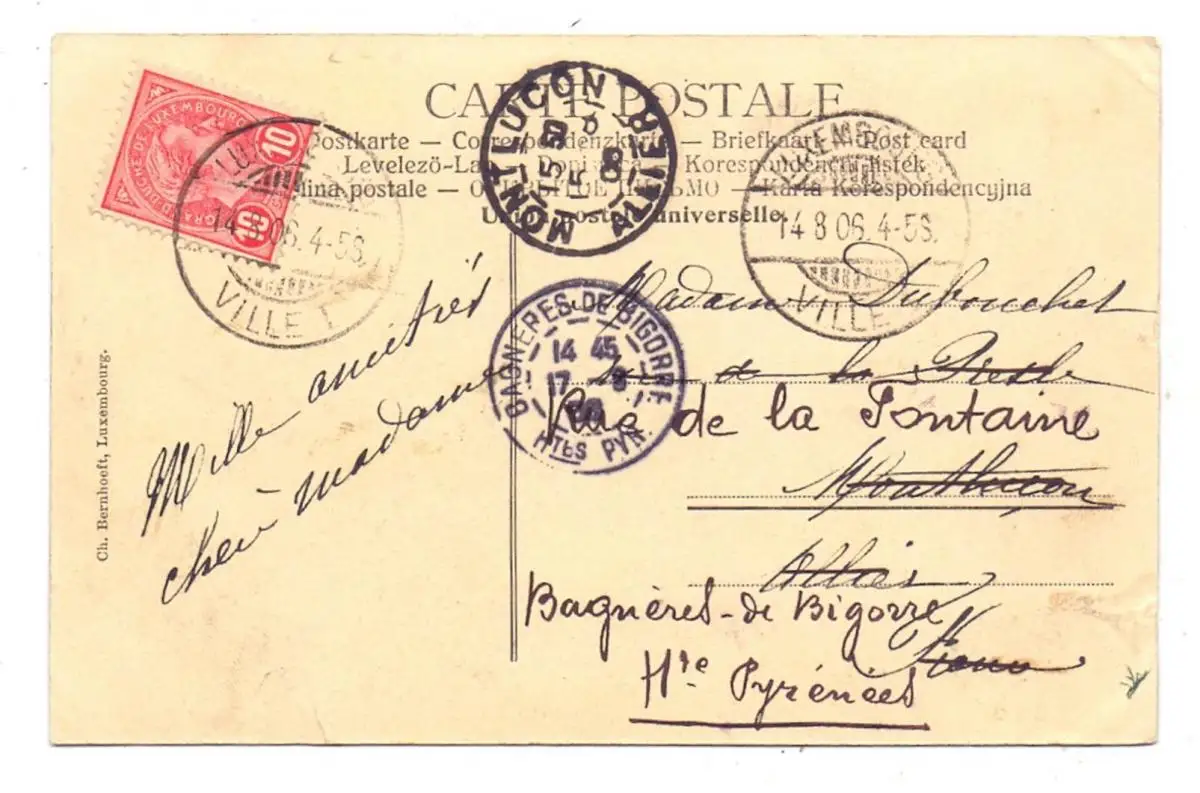 CARTE POSTALE
Postkarte — Correspondenzkarte — Briefkaart — Post card
Levelező-Lap — — Korespondenční listek
postale — — Karta Korespondencyjna
Union postale universelle.
GRAND DUCHÉ DE LUXEMBOURG
10 10
14 8 06. 4-5S.
VILLE
MONTLUCON
ALLIER
15 8
LUXEMBOURG
14 8 06. 4-5S.
VILLE
BAGNÈRES-DE-BIGORRE
14 45
17 - 8
06
HTES PYR.
Mille amitiés
chère madame
Madame Dubouchet
rue de la Presle
Rue de la Fontaine
Montluçon
Allier
Bagnères-de Bigorre
Hte Pyrénées
Ch. Bernhoeft, Luxembourg.